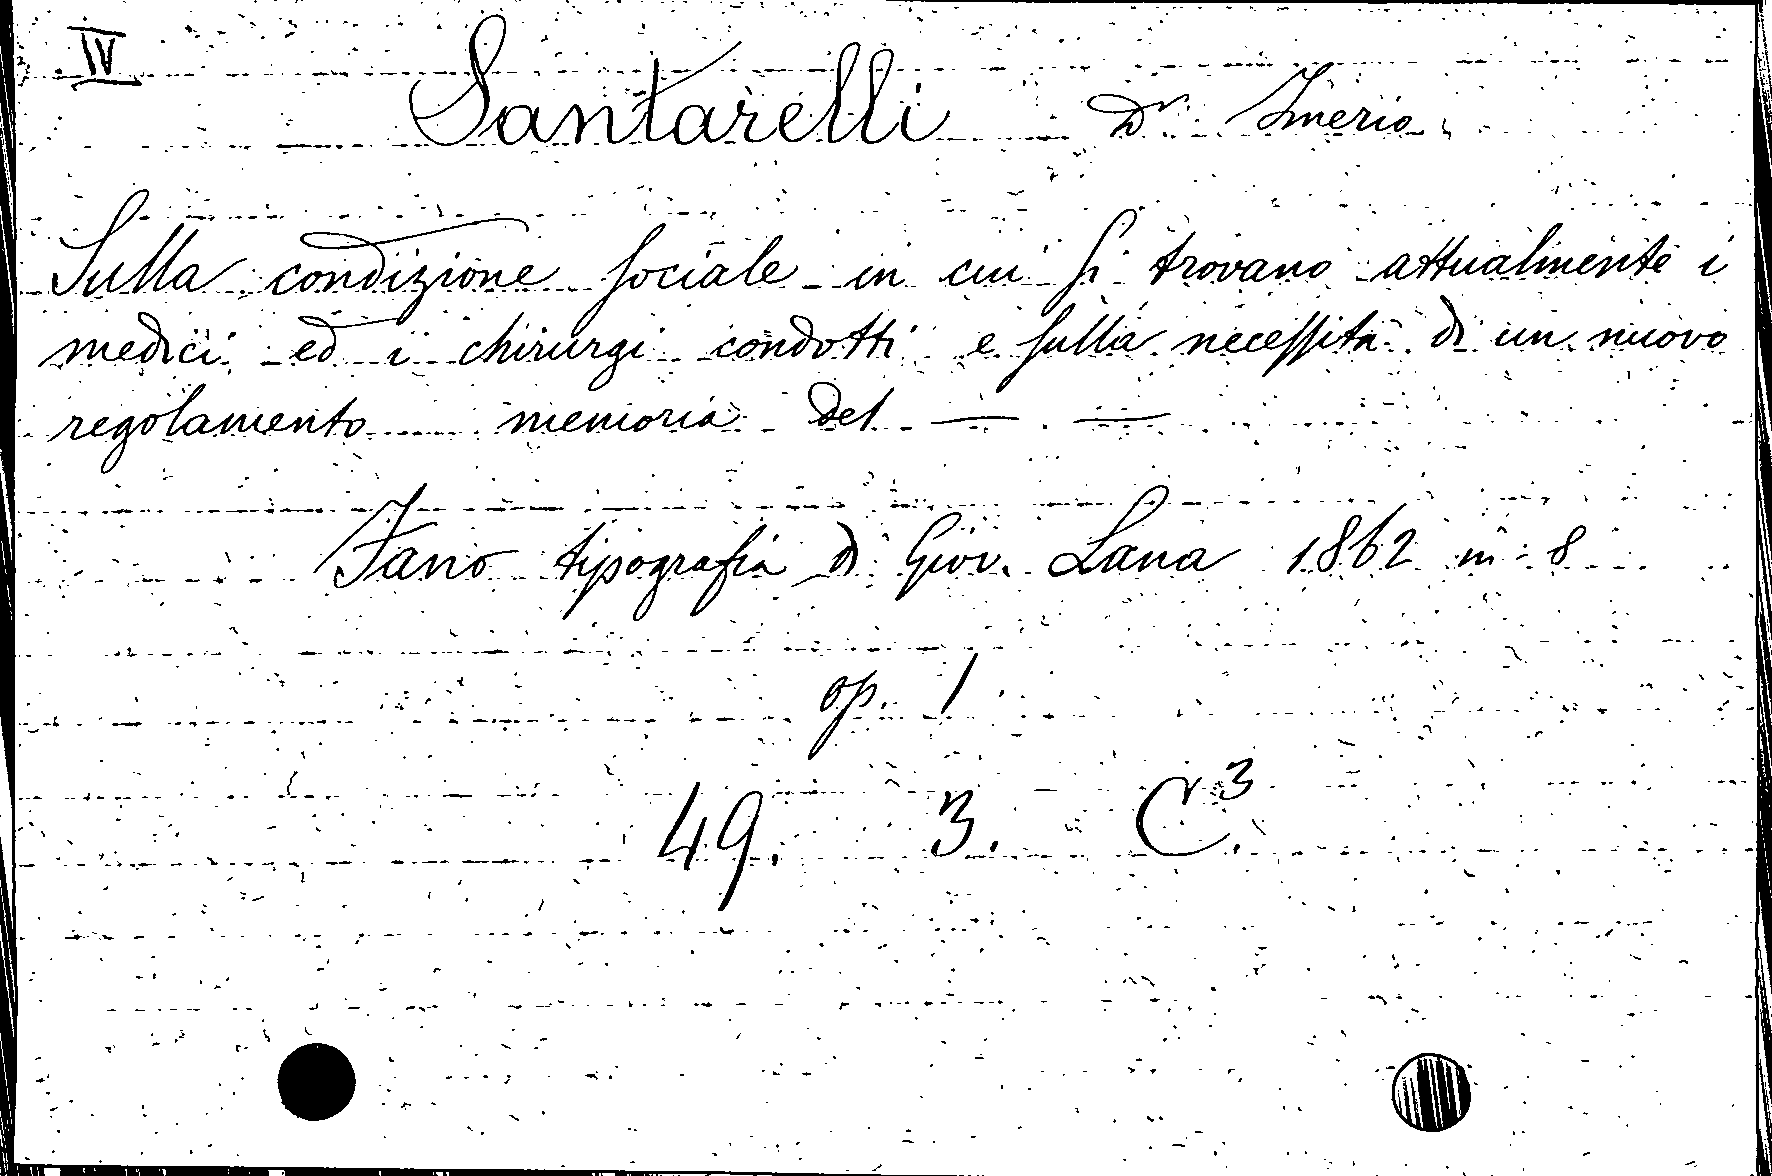 IV
Santarelli Dr. Imerio
Sulla condizione sociale in cui si trovano attualmente i
medici ed i chirurgi condotti e sulla necessità di un nuovo
regolamento memoria del — —
Fano tipografia di Giov. Lana 1862 in 8
op. 1
49. 3. C.3